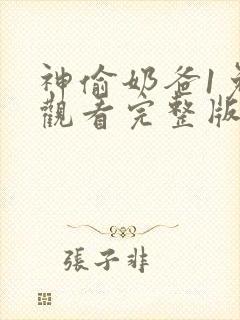 神偷奶爸1免
觀看完整版
張子非